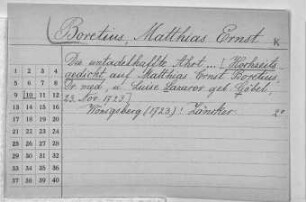 Boretius, Matthias Ernst
Die untadelhaffte Ahrt ... [Hochzeits-
gedicht auf Matthias Ernst Boretius,
Dr. med., u. Luise geb. Göbel.
23. Nov. 1723.]
Königsberg (1723): Zäncker. 2°
1 2 3 4
5 6 7 8
9 10 11 12
13 14 15 16
17 18 19 20
21 22 23 24
25 26 27 28
29 30 31 32
33 34 35 36
37 38 39 40